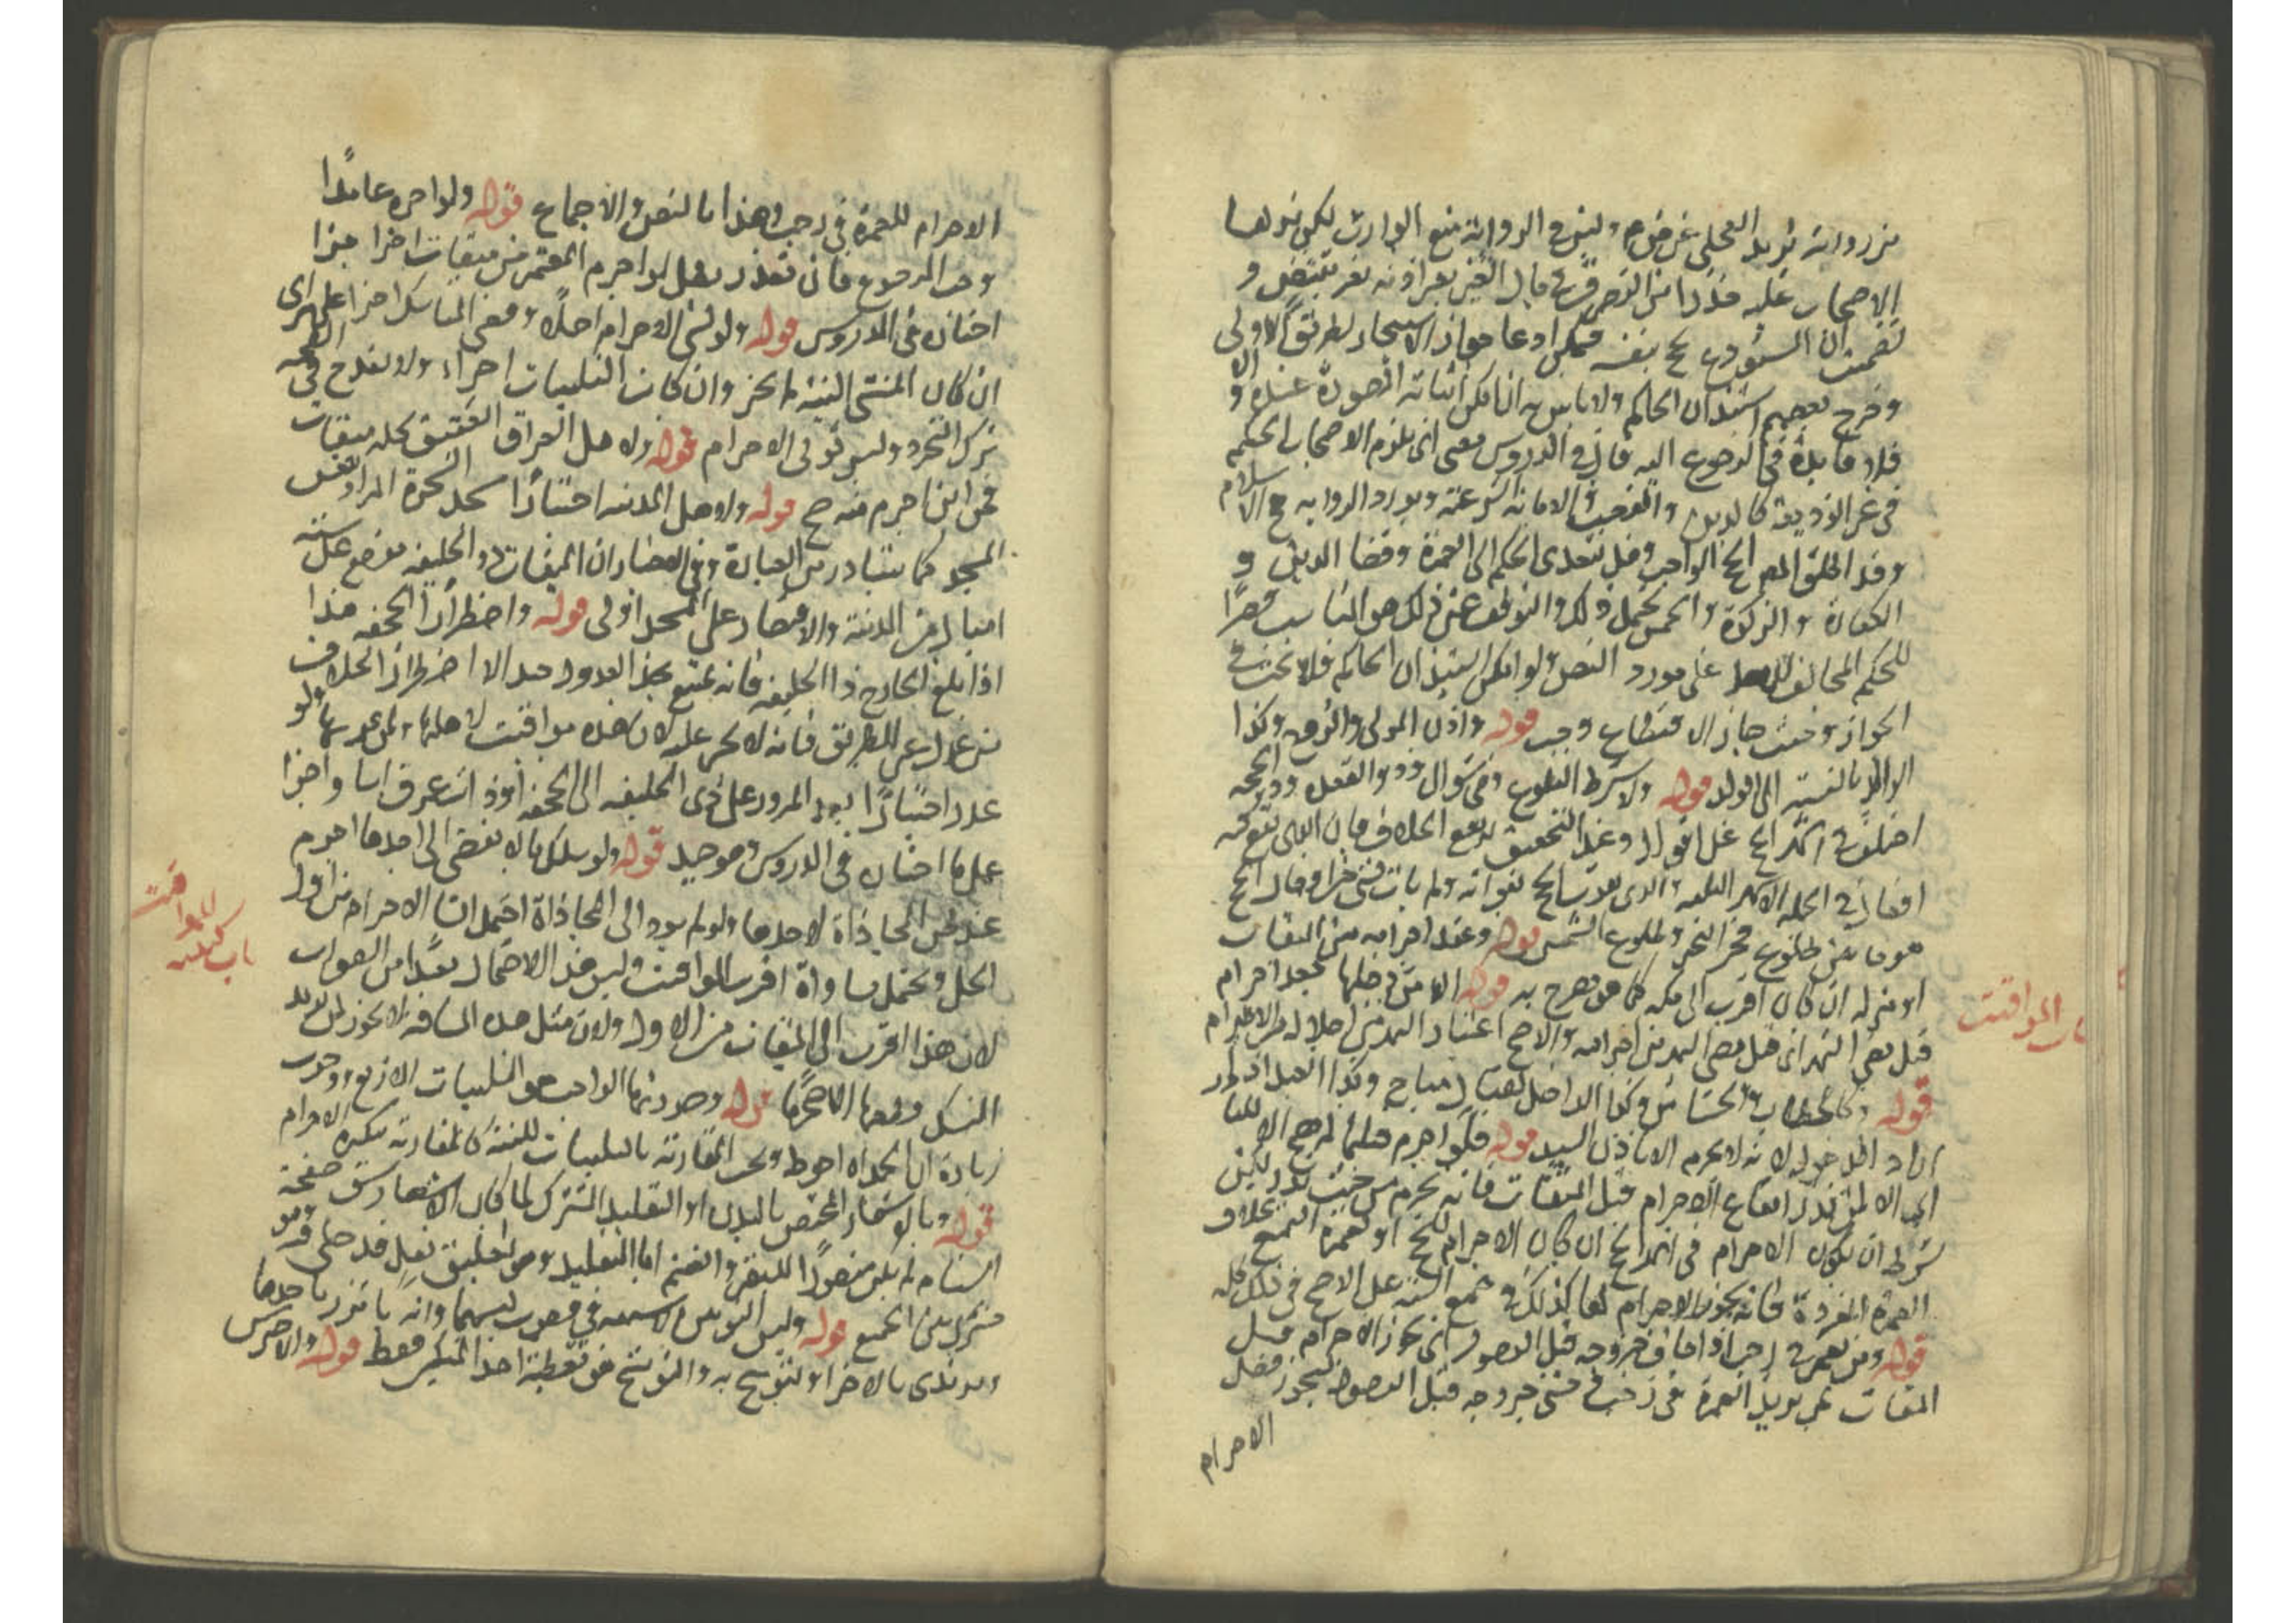 من رواية بريد العجلي عن ص م وليس في الرواية منع الوارث لكن نزلها
الاصحاب عليه حذرا من التصرف في مال الغير بغير اذنه نعم تقتضي و
تضمنت ان المستودع يحج بنفسه فيمكن ادعا جواز الاستيجار بطريق الاولى
وخرج بعضهم استيذان الحاكم ولا باس به ان امكن اثباته الصورة عنده و الا
فلا فايدة في الرجوع اليه قال في الدروس معنى انى يلزم الاصحاب الحكم
في غير الوديعة كالدين والغصب والامانة الشرعية ومورد الرواية حج الاسلام
وقد اطلق المص الحج الواجب وقيل يتعدى الحكم الى العمرة وقضا الدين و
الكفارة والزكوة والخمس يحتمل ذلك والتوقف عن ذلك هو المناسب قصرا
للحكم المخالف على مورد النص ولو امكن استيذان الحاكم فلا بحث في
الجواز وحيث جاز الاقتطاع وجب قوله واذن المولى والزوج وكذا
الوالد بالنسبة الى الولد قوله ولا يشترط البلوغ وهي شوال وذو القعدة وذو الحجة
اختلف في اشهر الحج على اقوال وعند التحقيق يرتفع الخلاف فان الذي يقع كه
افعال في الجملة الاشهر الثلثة والذي يفوت الحج بفواته ولم يات بشي من افعال الحج
هو ما بين طلوع فجر النحر وطلوع الشمس قوله وعقد احرامه من الميقات
او منزله ان كان اقرب الى مكه كما هو مصرح به قوله الا من دخلها بعد احرام
قبل مضي شهر اي قبل مضي الشهر من احرامه والاصح اعتبار الشهر من احلاله من الاحرام
قوله وكالحطاب والحشاش وكذا الداخل لقتال مباح وكذا العبد اذا
اراد الدخول لانه لا يحرم الا باذن السيد قوله فلو احرم قبلها لم يصح الا للنا
اي الا لمن نذر ايقاع الاحرام قبل الميقات فانه يحرم من حيث نذر لكن
شرطه ان يكون الاحرام في اشهر الحج ان كان الاحرام للحج او لعمرة التمتع بخلاف
العمرة المفردة فانه يجوز الاحرام لها كذلك في جميع السنة على الاصح في ذلك كله
قوله ومن يعتمر في رجب اذا خاف خروجه قبل الوصول اي يجوز الاحرام قبل
الميقات لمن يريد العمرة في رجب فخشي خروجه قبل الوصول ليحوز فضل
الاحرام
باب المواقيت
الاحرام للعمرة في رجب وهذا بالنص والاجماع قوله ولو اخره عامدا
وجب الرجوع فان تعذر بطل لو احرم المعتمر من ميقات اخر اجزا
اختاره في الدروس قوله ولو نسي الاحرام اصلا وقضى المناسك اجزا على راي الظاهر
ان كان المنسي النية لم يجز وان كان التلبيات اجزاء ولا يقدح فيه
ترك التجرد ولبس ثوبي الاحرام قوله ولاهل العراق العقيق كله ميقات
فمن اين احرم منه صح قوله ولاهل المدينه اختيارا مسجد الشجرة المراد نفس
المسجد كما يتبادر من العبارة وفي الاخبار ان الميقات ذو الحليفه موضع على ستة
اميال من المدينة والاقتصار على المسجد اولى قوله واضطرارا الجحفه هذا
اذا بلغ الخارج ذا الحليفه فانه يمتنع بجذ العدول عنه الا اضطرارا بخلاف
من عدل عن الطريق فانه لا حجر عليه لان هذه مواقيت لاهلها ولمن مر بها ولو
عدل اختيارا بعد المرور على ذي الحليفه الى الجحفه او ذات عرق اسا واجزا
على ما اختاره في الدروس وهو جيد قوله ولو سلك ما لا يفضي الى احدها احرم
عند ظن المحاذاة لاحدها ولو لم يود الى المحاذاة احتمل انشا الاحرام من اول
الحل ويحتمل مساواة اقرب المواقيت وليس هذا الاحتمال بعيدا من الصواب
لان هذا اقرب الى الميقات من الاول ولان مثل هذه المسافه لا يجوز لمن يريد
النسك قطعها الا محرما قوله وصورتها الواجب هو التلبيات الاربع ووجوب
زيادة ان الحمد اه احوط ويجب المقارنة بالتلبيات للنية كالمقارنة تكبيرة الاحرام
قوله وبالاشعار المختص بالبدن او التقليد المشترك لما كان الاشعار شق صفحة
السنام لم يكن متصورا للبقر والغنم اما التقليد وهو تعليق نعل قد صلى فيه
مشترك بين الجميع قوله ولبس الثوبين ولا شبهه في وجوب لبسهما وانه ياتزر باحدهما
ويرتدي بالاخر او يتوشح به والتوشح هو تغطية احد المنكبين فقط قوله والاخرس
باب كيفية
المواقيت